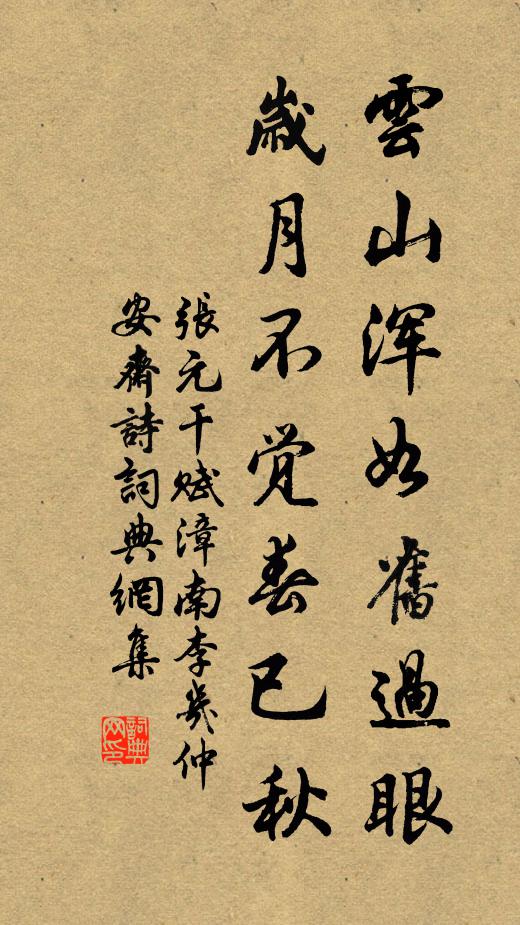 雲山渾如舊過眼
歲月不覚春已秋
張元干賦漳南李幾仲
安齋詩詞典網集
詞典网印